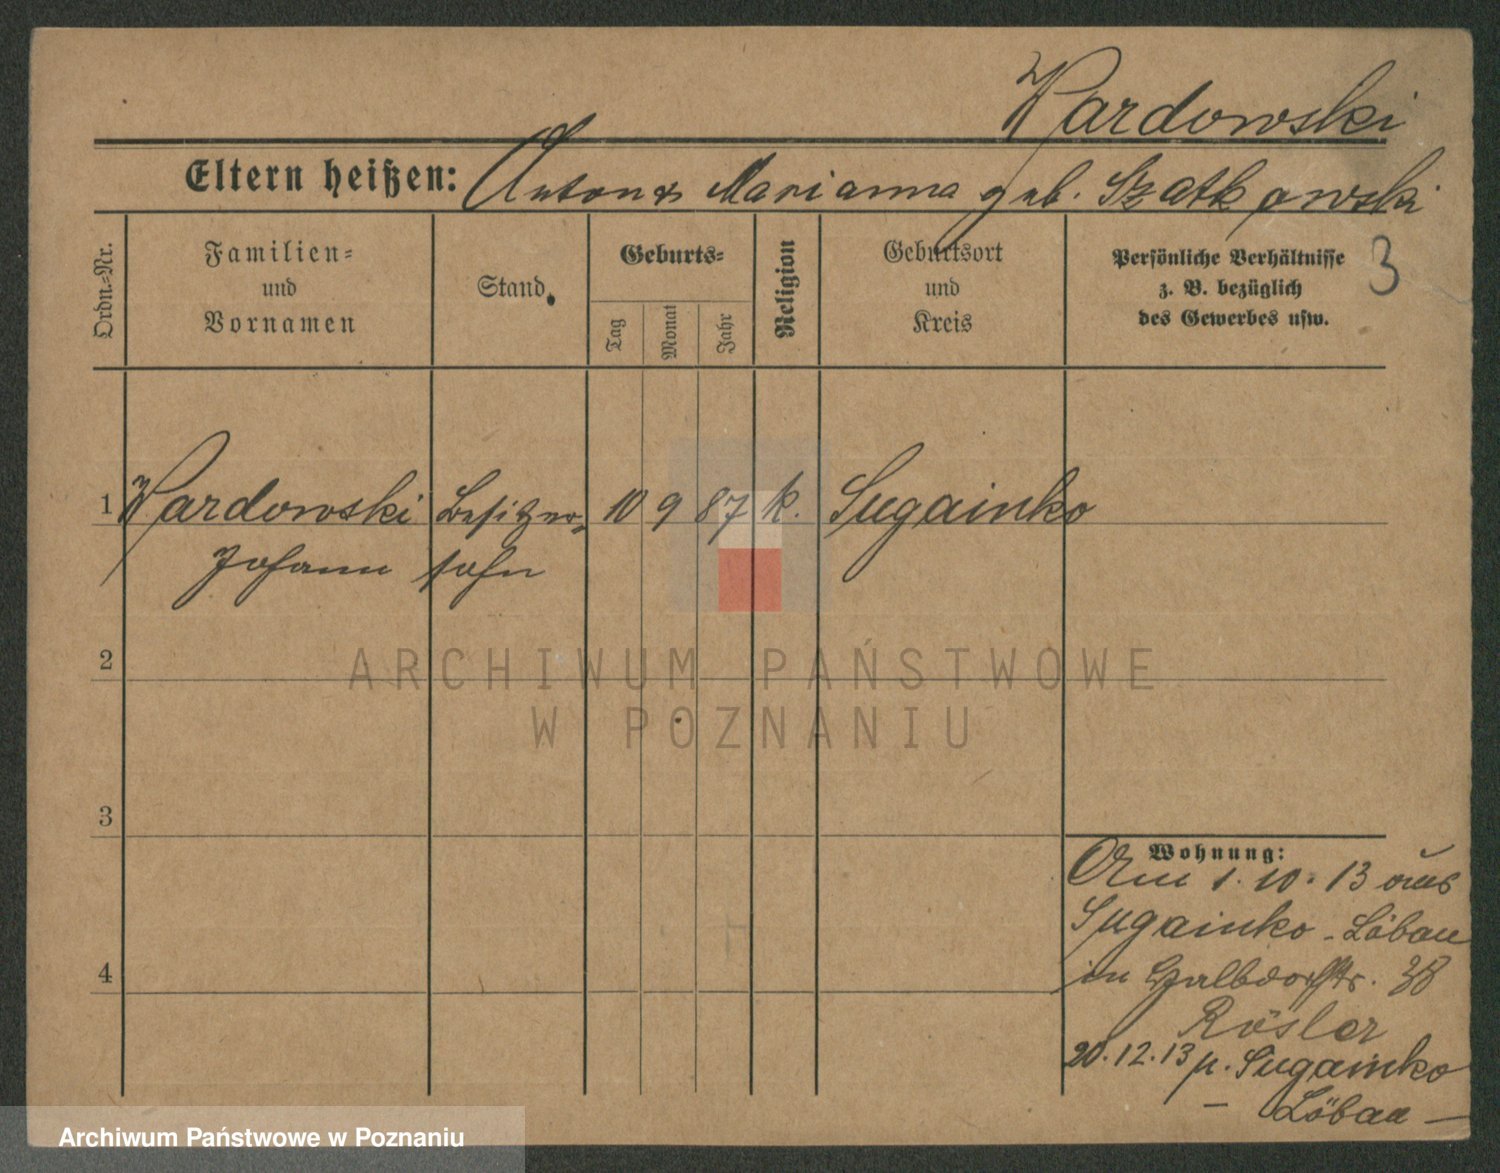 Wardowski
Eltern heißen: Anton & Marianna geb. Szatkowski
Ordn.=Nr.
Familien=
und
Vornamen
Stand.
Geburts=
Tag
Monat
Jahr
Religion
Geburtsort
und
Kreis
Persönliche Verhältnisse
z. B. bezüglich
des Gewerbes usw.
3
1 Wardowski Besitzer= 10 9 87 k. Sugainko
Johann sohn
2
ARCHIWUM PAŃSTWOWE
W POZNANIU
3
Wohnung:
Am 1.10.13 aus
Sugainko - Löbau
in Halbdorfstr. 38
4
Rösler
20.12.13 n. Sugainko
- Löbau -
Archiwum Państwowe w Poznaniu